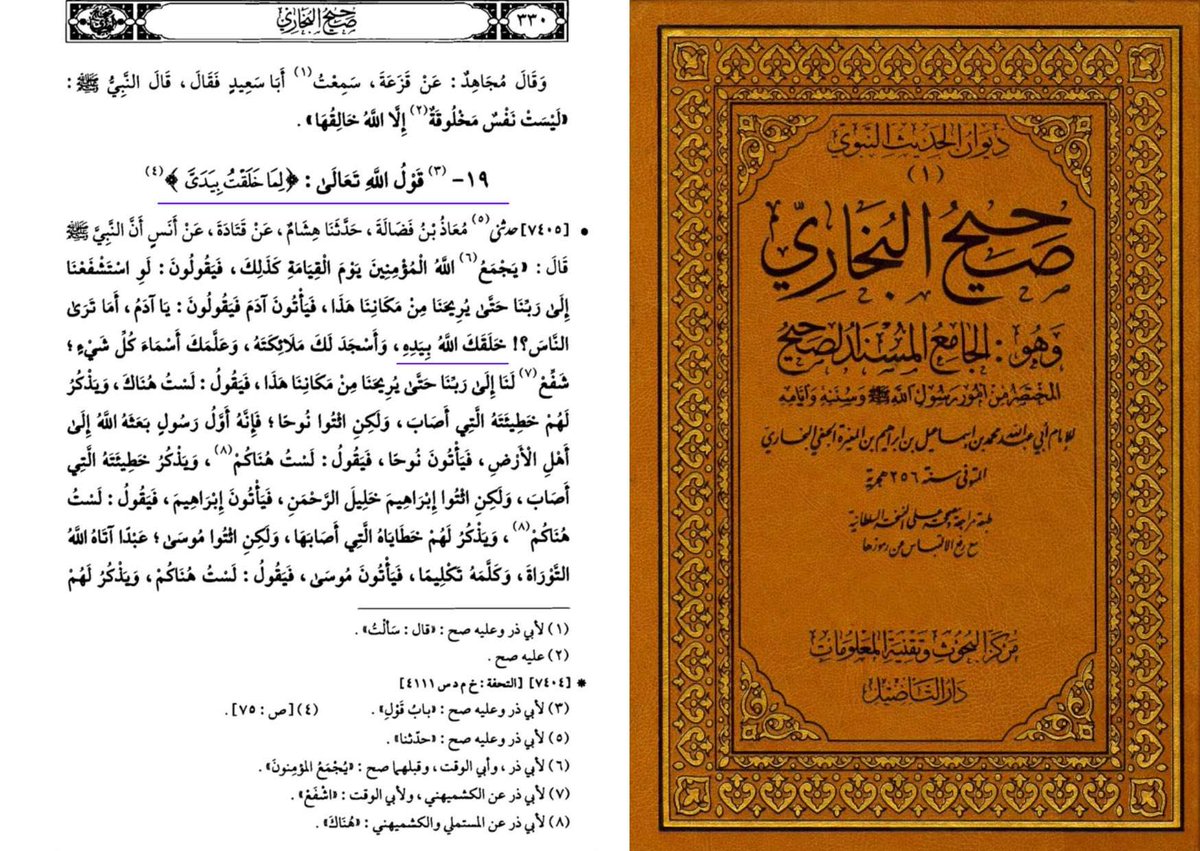 صَحِيحُ البُخَارِيِّ
٣٣٠
وَقَالَ مُجَاهِدٌ : عَنْ قَزَعَةَ ، سَمِعْتُ (١) أَبَا سَعِيدٍ فَقَالَ ، قَالَ النَّبِيُّ ﷺ :
«لَيْسَتْ نَفْسٌ مَخْلُوقَةٌ (٢) إِلَّا اللَّهُ خَالِقُهَا» .
١٩- (٣) قَوْلُ اللَّهِ تَعَالَىٰ : ﴿لِمَا خَلَقْتُ بِيَدَيَّ﴾ (٤)
• [٧٤٠٥] حدثني (٥) مُعَاذُ بْنُ فَضَالَةَ ، حَدَّثَنَا هِشَامٌ ، عَنْ قَتَادَةَ ، عَنْ أَنَسٍ أَنَّ النَّبِيَّ ﷺ
قَالَ : «يَجْمَعُ (٦) اللَّهُ الْمُؤْمِنِينَ يَوْمَ الْقِيَامَةِ كَذَلِكَ ، فَيَقُولُونَ : لَوِ اسْتَشْفَعْنَا
إِلَى رَبِّنَا حَتَّى يُرِيحَنَا مِنْ مَكَانِنَا هَذَا ، فَيَأْتُونَ آدَمَ فَيَقُولُونَ : يَا آدَمُ ، أَمَا تَرَىٰ
النَّاسَ ؟! خَلَقَكَ اللَّهُ بِيَدِهِ ، وَأَسْجَدَ لَكَ مَلَائِكَتَهُ ، وَعَلَّمَكَ أَسْمَاءَ كُلِّ شَيْءٍ ؛
شَفِّعْ (٧) لَنَا إِلَىٰ رَبِّنَا حَتَّىٰ يُرِيحَنَا مِنْ مَكَانِنَا هَذَا ، فَيَقُولُ : لَسْتُ هُنَاكَ ، وَيَذْكُرُ
لَهُمْ خَطِيئَتَهُ الَّتِي أَصَابَ ، وَلَكِنِ ائْتُوا نُوحًا ؛ فَإِنَّهُ أَوَّلُ رَسُولٍ بَعَثَهُ اللَّهُ إِلَىٰ
أَهْلِ الْأَرْضِ ، فَيَأْتُونَ نُوحًا ، فَيَقُولُ : لَسْتُ هُنَاكُمْ (٨) ، وَيَذْكُرُ خَطِيئَتَهُ الَّتِي
أَصَابَ ، وَلَكِنِ ائْتُوا إِبْرَاهِيمَ خَلِيلَ الرَّحْمَنِ ، فَيَأْتُونَ إِبْرَاهِيمَ ، فَيَقُولُ : لَسْتُ
هُنَاكُمْ (٨) ، وَيَذْكُرُ لَهُمْ خَطَايَاهُ الَّتِي أَصَابَهَا ، وَلَكِنِ ائْتُوا مُوسَىٰ ؛ عَبْدًا آتَاهُ اللَّهُ
التَّوْرَاةَ ، وَكَلَّمَهُ تَكْلِيمًا ، فَيَأْتُونَ مُوسَىٰ ، فَيَقُولُ : لَسْتُ هُنَاكُمْ ، وَيَذْكُرُ لَهُمْ
(١) لأبي ذر وعليه صح : «قال : سَأَلْتُ» .
(٢) عليه صح .
* [٧٤٠٤] [التحفة : خ م د س ٤١١١]
(٣) لأبي ذر وعليه صح : «بابُ قَوْلِ» .
(٤) [ص : ٧٥] .
(٥) لأبي ذر وعليه صح : «حدّثنا» .
(٦) لأبي ذر ، وأبي الوقت ، وقبلهما صح : «يُجْمَعُ المؤمنونَ» .
(٧) لأبي ذر عن الكشميهني ، ولأبي الوقت : «اشْفَعْ» .
(٨) لأبي ذر عن المستملي والكشميهني : «هُنَاكَ» .
ديوان الحديث النبوي
(١)
صَحِيحُ البُخَارِيِّ
وَهُوَ : الجَامِعُ المُسْنَدُ الصَّحِيحُ
المُخْتَصَرُ مِنْ أُمُورِ رَسُولِ اللَّهِ ﷺ وَسُنَنِهِ وَأَيَّامِهِ
للإمام أبي عبد الله محمد بن إسماعيل بن إبراهيم بن المغيرة الجعفي البخاري
المتوفى سنة ٢٥٦ هجرية
طبعة مراجعة ومصححة على النسخة السلطانية
مع رفع الالتباس عن رموزها
مركز البحوث وتقنية المعلومات
دار التأصيل